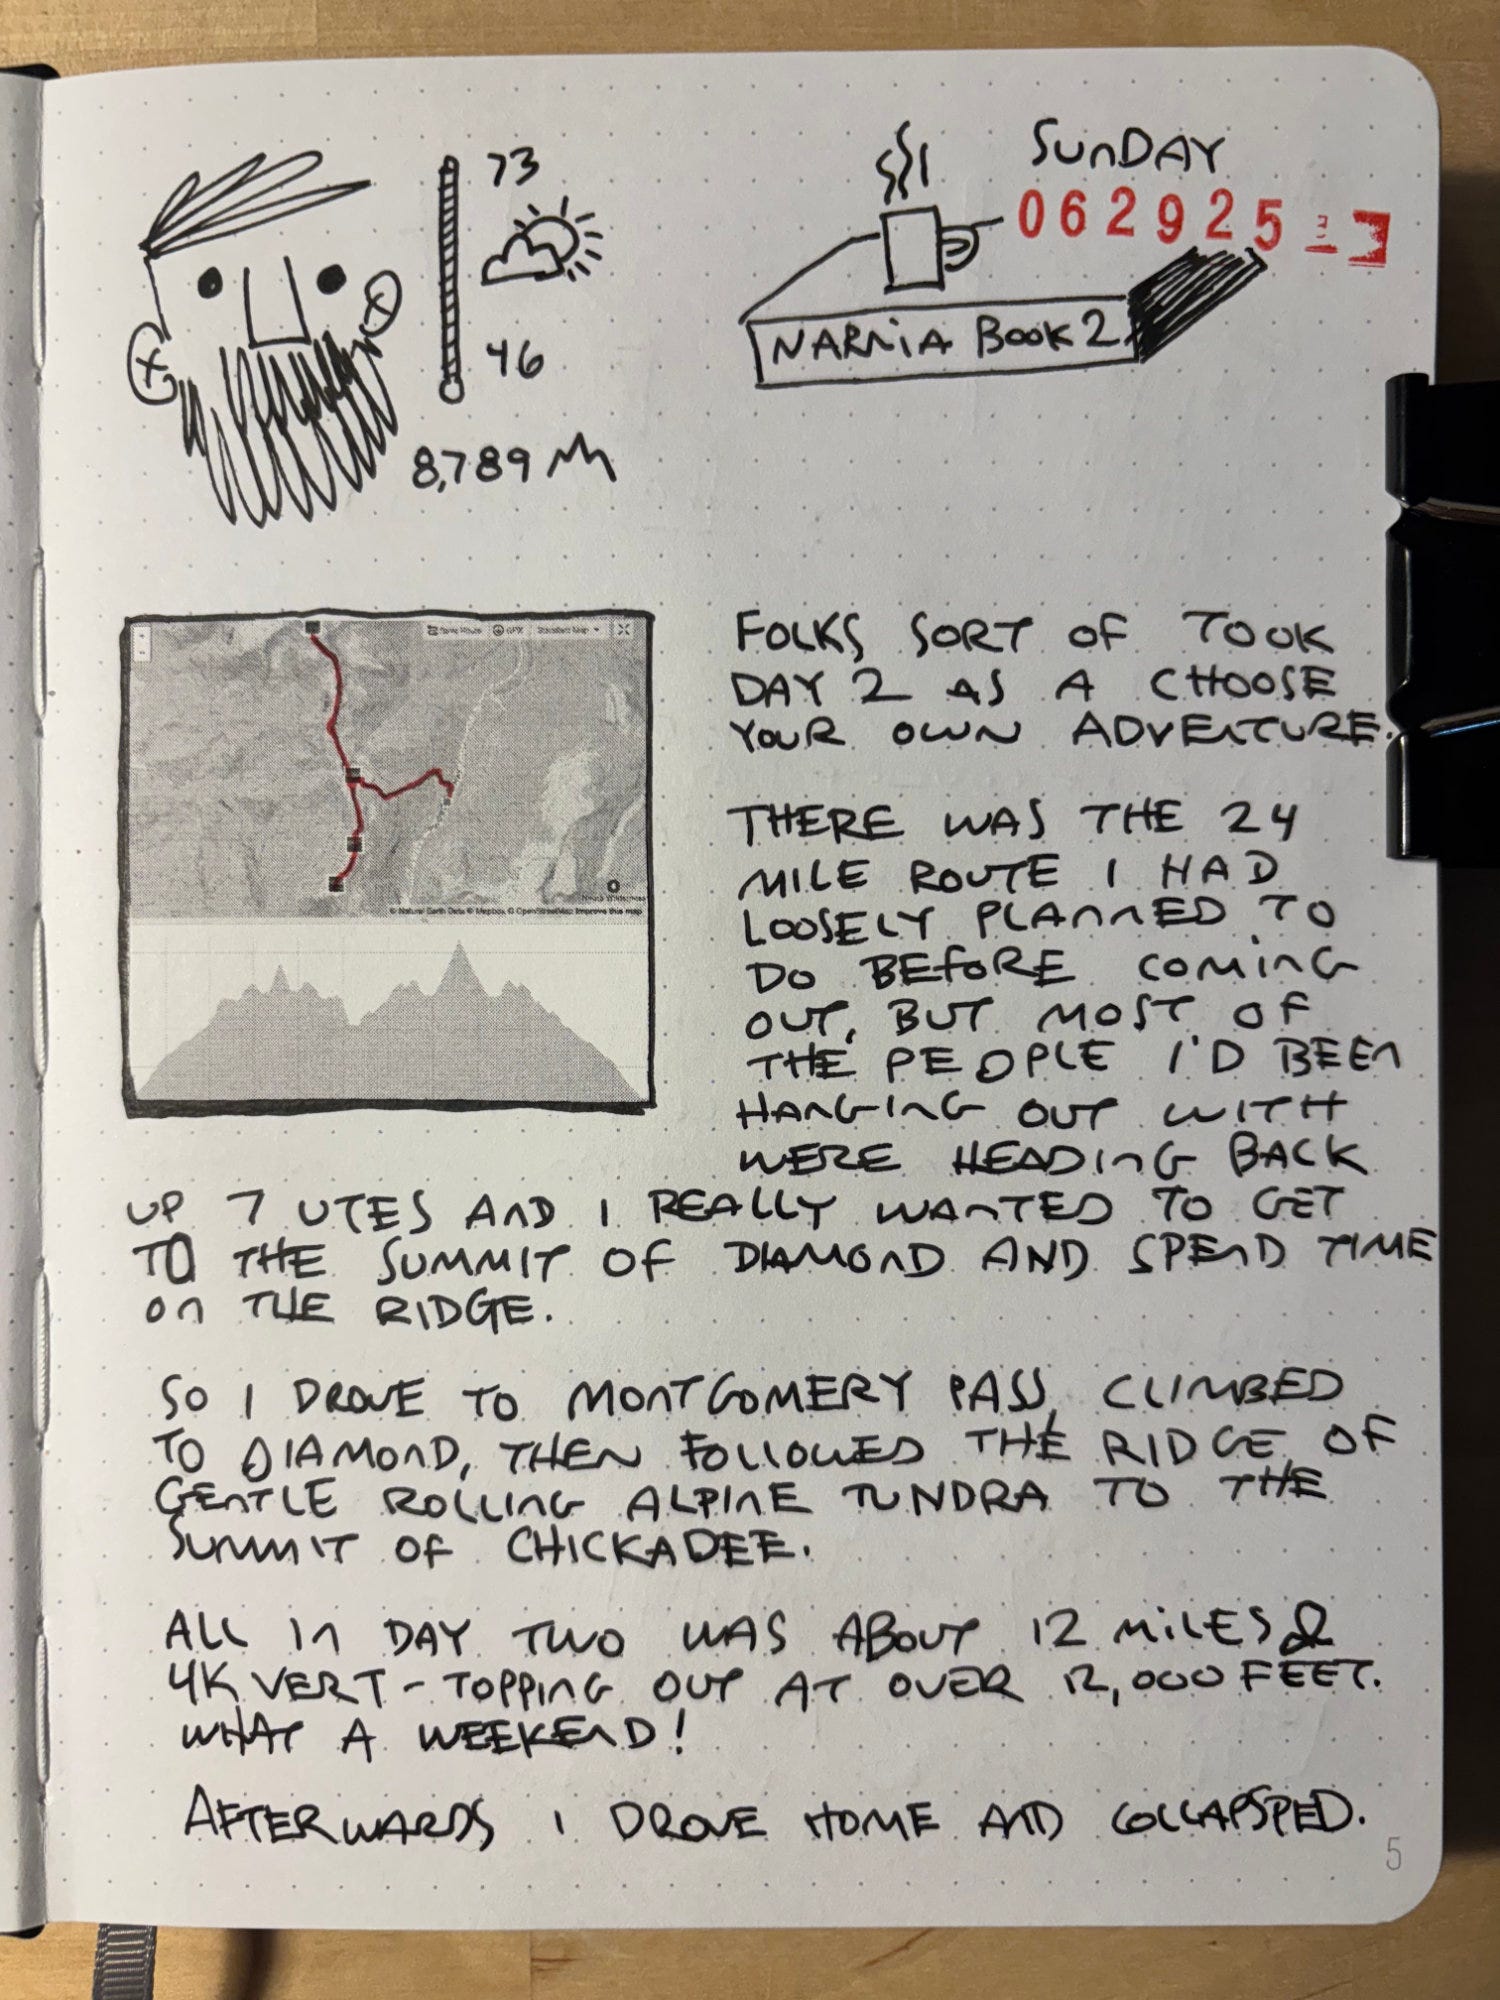 73
46
8,789
SUNDAY
062925
NARNIA BOOK 2
GPX
Standard Map
© Natural Earth Data © Mapbox © OpenStreetMap Improve this map
FOLKS SORT OF TOOK
DAY 2 AS A CHOOSE
YOUR OWN ADVENTURE.
THERE WAS THE 24
MILE ROUTE I HAD
LOOSELY PLANNED TO
DO BEFORE COMING
OUT, BUT MOST OF
THE PEOPLE I'D BEEN
HANGING OUT WITH
WERE HEADING BACK
UP 7 UTES AND I REALLY WANTED TO GET
TO THE SUMMIT OF DIAMOND AND SPEND TIME
ON THE RIDGE.
SO I DROVE TO MONTGOMERY PASS, CLIMBED
TO DIAMOND, THEN FOLLOWED THE RIDGE OF
GENTLE ROLLING ALPINE TUNDRA TO THE
SUMMIT OF CHICKADEE.
ALL IN DAY TWO WAS ABOUT 12 MILES &
4K VERT - TOPPING OUT AT OVER 12,000 FEET.
WHAT A WEEKEND!
AFTERWARDS I DROVE HOME AND COLLAPSPED.
5